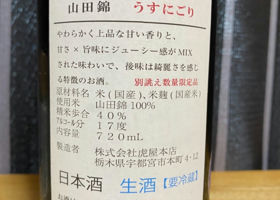 山田錦 うすにごり
やわらかく上品な甘い香りと、
甘さ×旨味にジューシー感がMIX
された味わいで、後味は綺麗さを感じ
る特徴のお酒。 別誂え数量限定品
原材料名 米(国産)、米麹(国産米)
使用米 山田錦100%
精米歩合 40%
アルコール分 17度
内容量 720mL
製造者 株式会社虎屋本店
栃木県宇都宮市本町4-12
日本酒 生酒【要冷蔵】